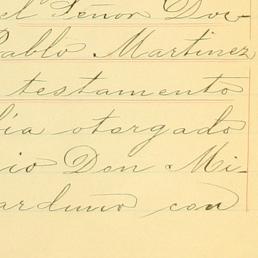 el Señor Doc-
Pablo Martinez
testamento
bia otorgado
io Don Mi-
arduño con